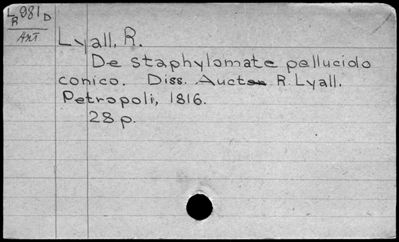 L981D
R
Ant
Lyall, R.
De staphylomate pellucido
conico. Diss. Auct R. Lyall.
Petropoli, 1816.
28 p.